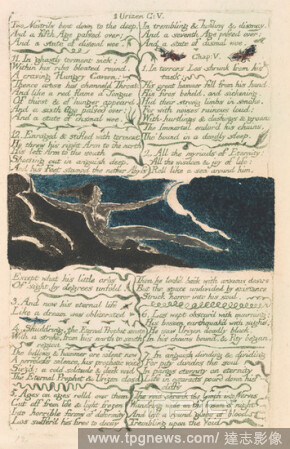 I Urizen C: V.
Two Nostrils bent down to the deep.
And a fifth Age passed over;
And a state of dismal woe.
11. In ghastly torment sick;
Within his ribs bloated round,
A craving Hungry Cavern;
Thence arose his channeld Throat,
And like a red flame a Tongue
Of thirst & of hunger appeard.
And a sixth Age passed over:
And a state of dismal woe.
12. Enraged & stifled with torment
He threw his right Arm to the north
His left Arm to the south
Shooting out in anguish deep,
And his Feet stampd the nether Abyss
In trembling & howling & dismay.
And a seventh Age passed over:
And a state of dismal woe.
Chap: V.
1. In terrors Los shrunk from his
task:
His great hammer fell from his hand:
His fires beheld, and sickening,
Hid their strong limbs in smoke.
For with noises ruinous loud;
With hurtlings & clashings & groans
The Immortal endur'd his chains,
Tho' bound in a deadly sleep.
2. All the myriads of Eternity:
All the wisdom & joy of life:
Roll like a sea around him,
Except what his little orbs
Of sight by degrees unfold.
3. And now his eternal life
Like a dream was obliterated
4. Shudd'ring, the Eternal Prophet smote
With a stroke, from his north to south
The bellows & hammer are silent now
A nerveless silence, his prophetic voice
Siez'd; a cold solitude & dark void
The Eternal Prophet & Urizen clos'd
5. Ages on ages rolld over them
Cut off from life & light frozen
Into horrible forms of deformity
Los sufferd his fires to decay
Then he look'd back with anxious desire
But the space undivided by existence
Struck horror into his soul.
6. Los wept obscur'd with mourning:
His bosom earthquak'd with sighs;
He saw Urizen deadly black,
In his chains bound, & Pity began,
7. In anguish dividing & dividing
For pity divides the soul
In pangs eternity on eternity
Life in cataracts pourd down his
cliffs
The void shrunk the lymph into Nerves
Wand'ring wide on the bosom of night
And left a round globe of blood
Trembling upon the Void
www.tpgnews.com / 達志影像